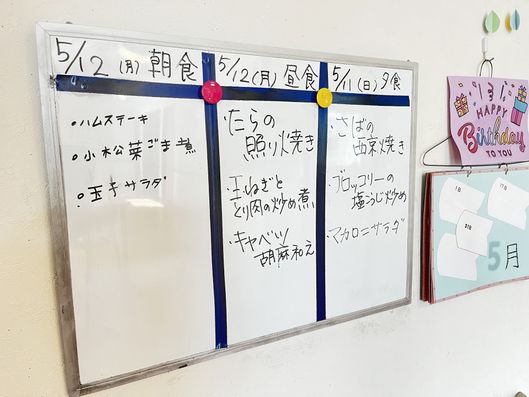 5/12(月)朝食
・ハムステーキ
・小松菜ごま煮
・玉子サラダ
5/12(月)昼食
・たらの
照り焼き
・玉ねぎと
とり肉の炒め煮
・キャベツ
胡麻和え
5/11(日)夕食
・さばの
西京焼き
・ブロッコリーの
塩こうじ炒め
・マカロニサラダ
HAPPY
Birthday
TO YOU
5月